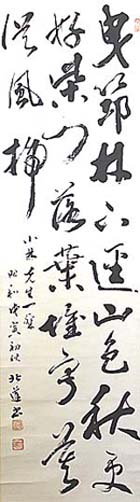 曳笻林下逕山色秋更
好柴門落葉堆
從風掃
小林老生
昭和戊寅初秋 北蓮書